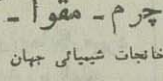 چرم ۔ مقوا ۔
خانجات شیمیائی جهان